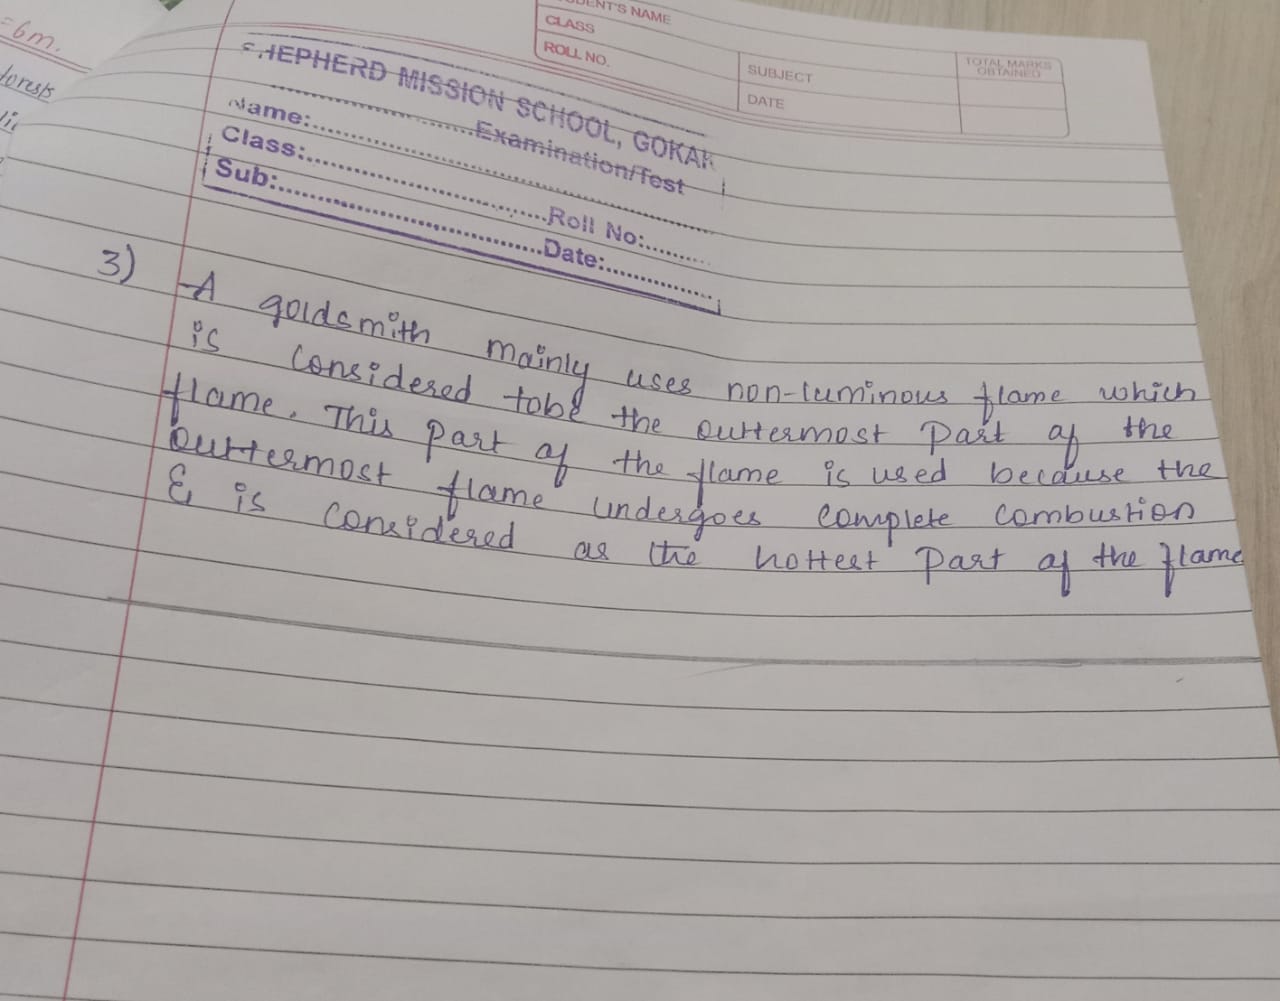 =6m.
forests
STUDENT'S NAME
CLASS
ROLL NO.
SUBJECT
DATE
TOTAL MARKS
OBTAINED
SHEPHERD MISSION SCHOOL, GOKAK
....................Examination/Test
Name:............................................................
Class:...................................Roll No:..........
Sub:.......................................Date:................
3) A goldsmith mainly uses non-luminous flame which
is considered tobe the outtermost part of the
flame. This part of the flame is used because the
outtermost flame undergoes complete combustion
& is considered as the hottest part of the flame